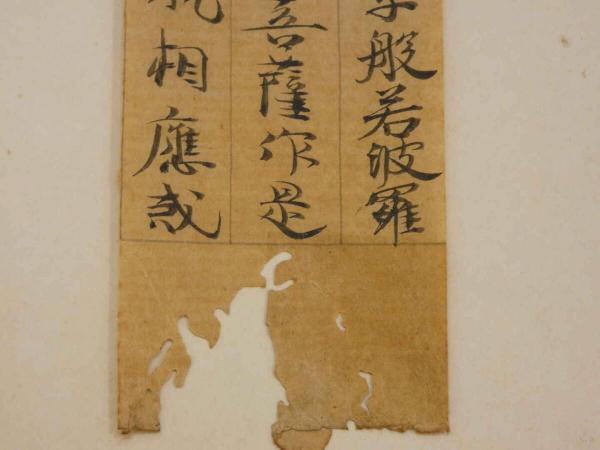 般若波羅
菩薩作是
相應或